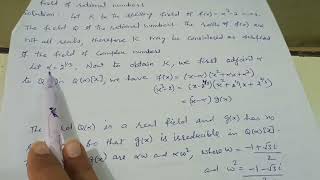 field of rational numbers
Solution: Let K be the splitting field of f(x) = x³-2
The field Q of rational numbers. The roots of f(x) are
not all reals, therefore K may be considered as
of the field of complex numbers
Let α = 2^(1/3). Now to obtain K, we first adjoin α
to Q. In Q(α)[x], we have f(x) = (x-α)(x²+αx+α²)
(x³-2) = (x-2^(1/3))(x²+2^(1/3)x+2^(2/3))
= (x-α) g(x)
Q(α) is a real field and g(x) has no
so that g(x) is irreducible in Q(α)[x].
g(x) are αω and αω², where ω = (-1+√3i)/2
and ω² = (-1-√3i)/2